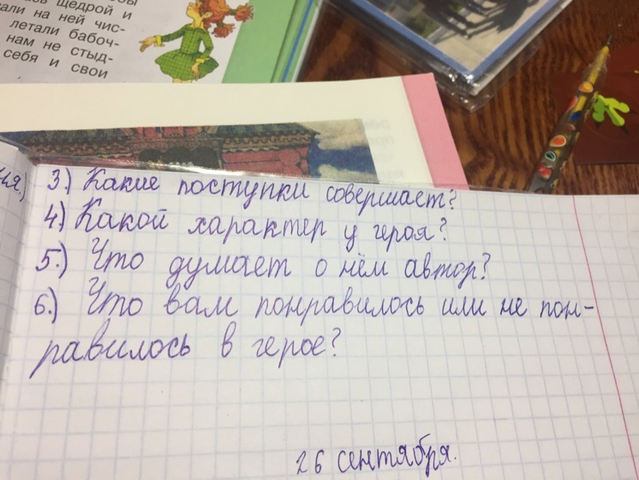 щедрой и
на ней чис-
летали бабоч-
нам не стыд-
себя и свои
3.) Какие поступки совершает?
4) Какой характер у героя?
5.) Что думает о нём автор?
6.) Что вам понравилось или не пон-
равилось в герое?
26 сентября.